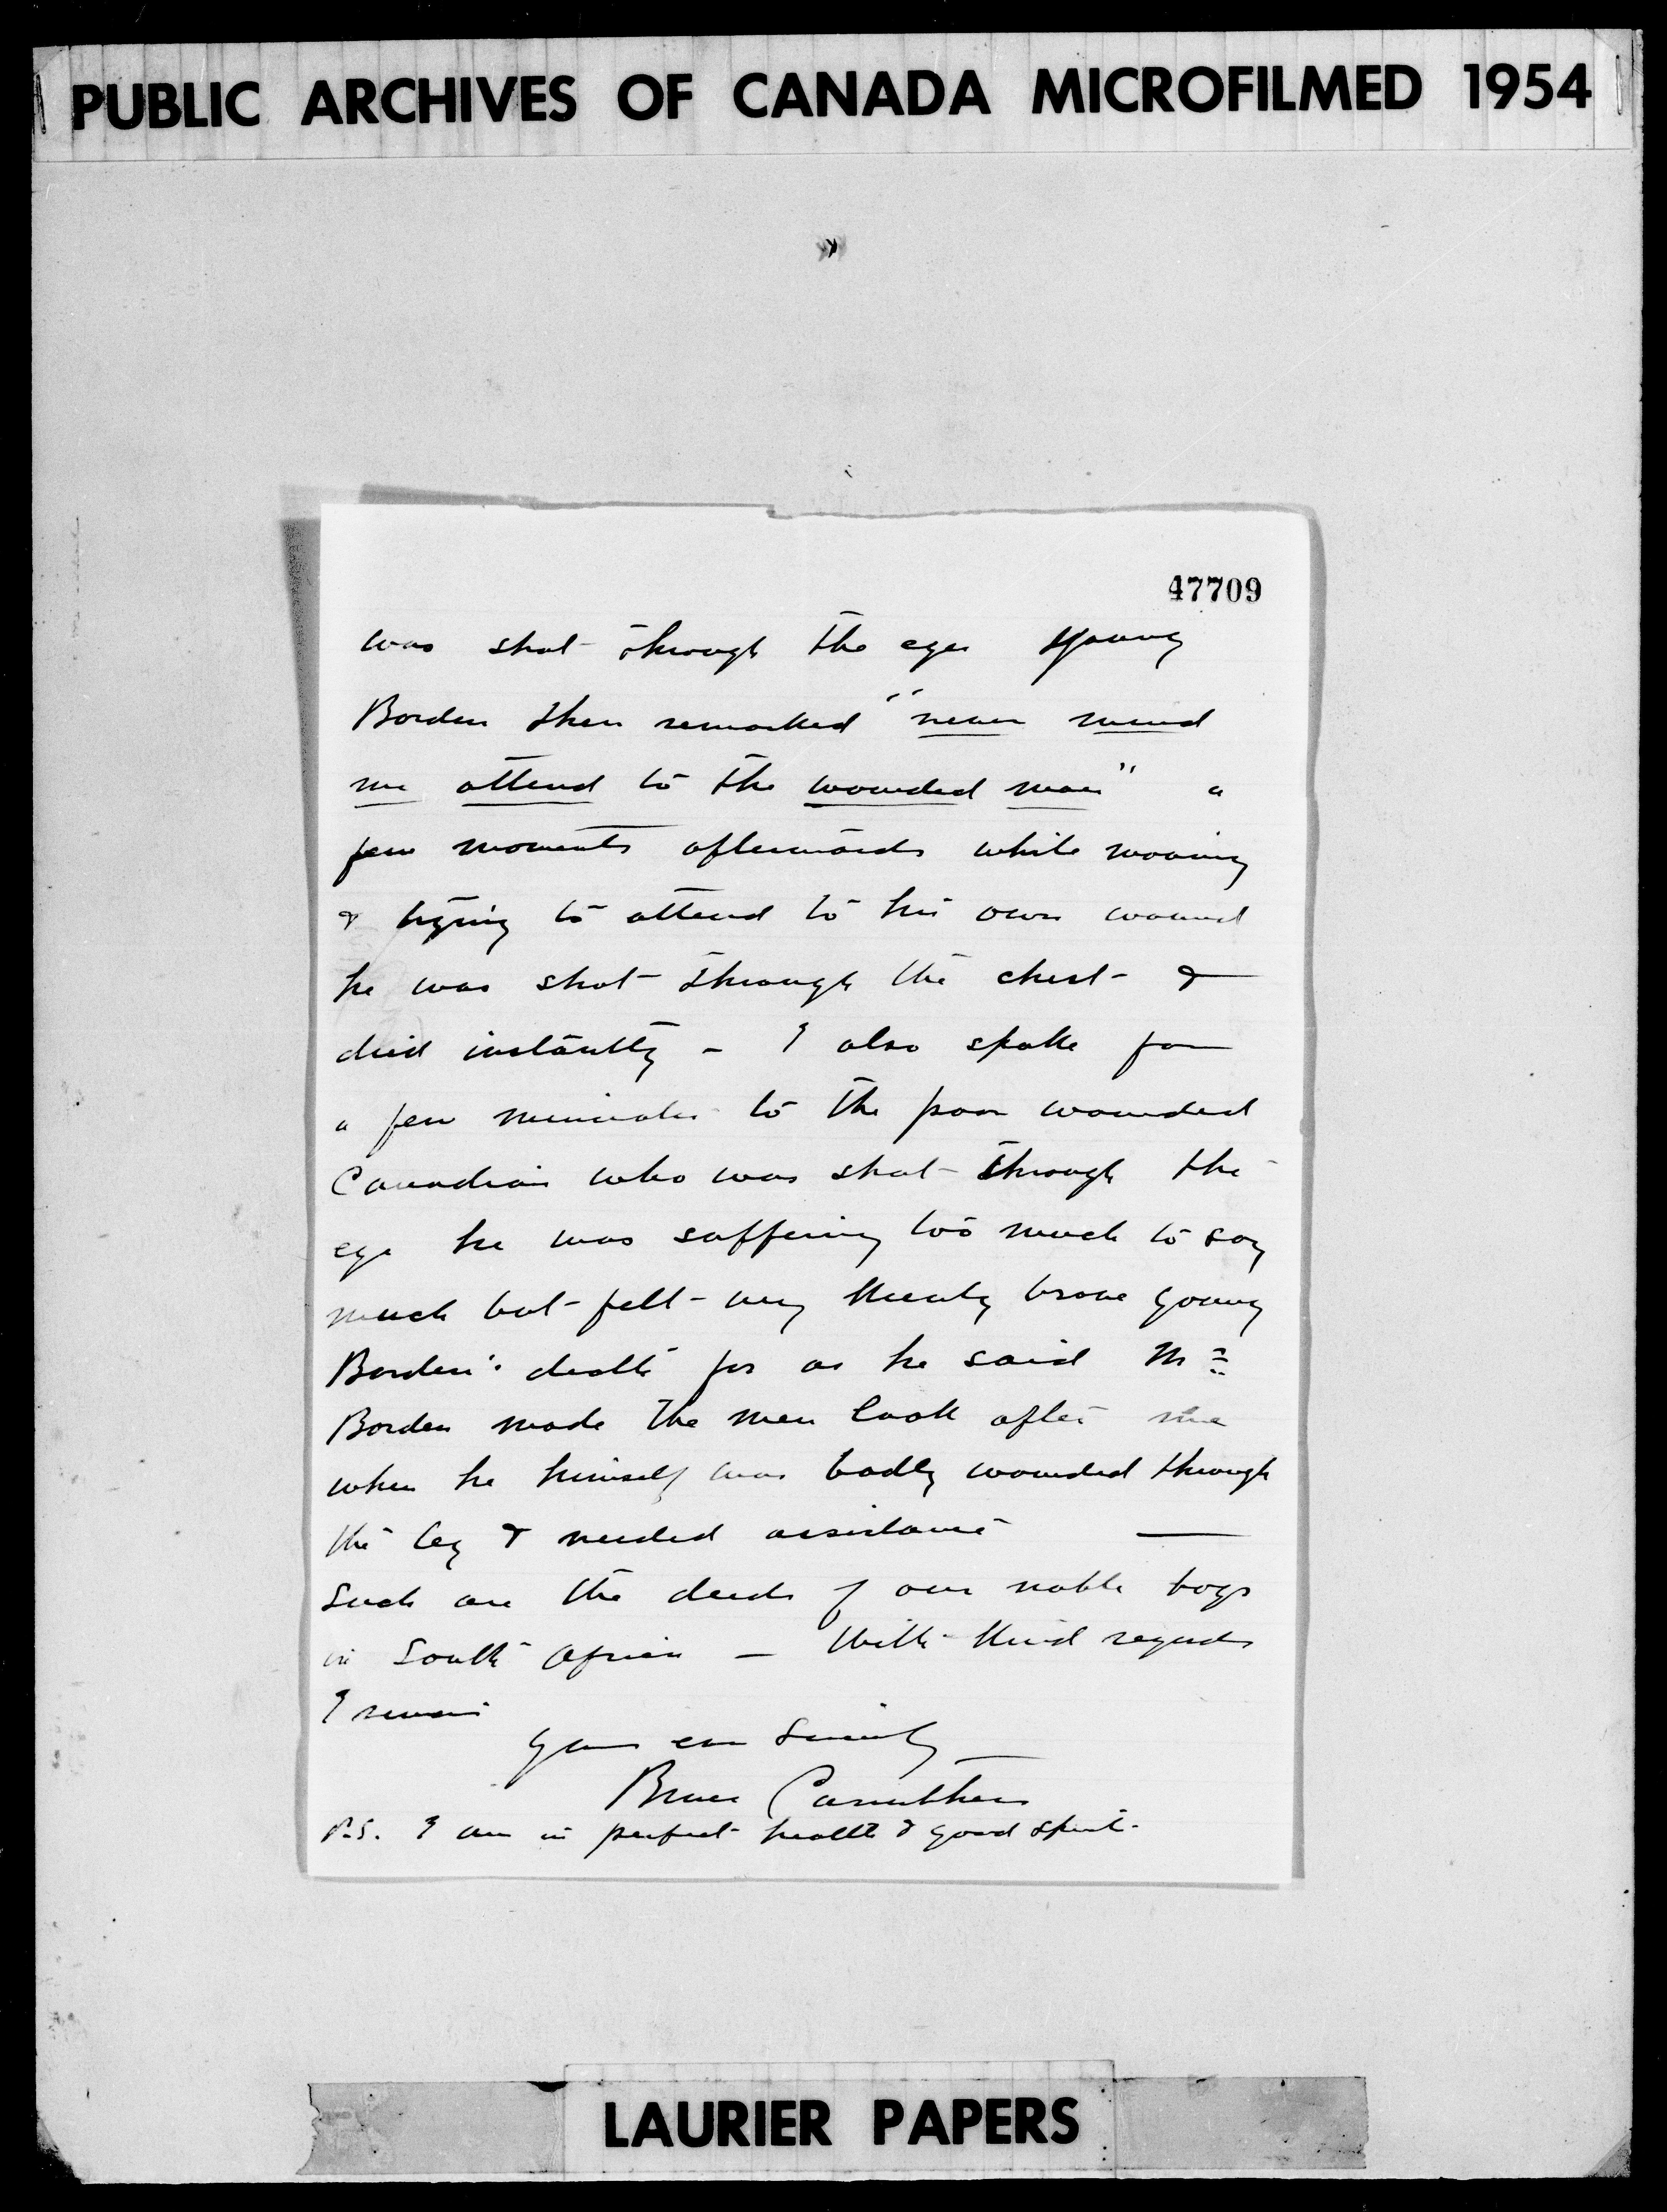 PUBLIC ARCHIVES OF CANADA MICROFILMED 1954
47709
was shot through the eyes Young
Borden then remarked "never mind
me attend to the wounded man" a
few moments afterwards while moving
& trying to attend to his own wound
he was shot through the chest &
died instantly - I also spoke for
a few minutes to the poor wounded
Canadian who was shot through the
eye he was suffering too much to say
much but felt very keenly brave young
Borden's death for as he said Mr
Borden made the men look after me
when he himself was badly wounded through
the leg & needed assistance —
Such are the deeds of our noble boys
in South Africa — With kind regards
I remain
Yours ever Sincerely
Bruce Carruthers
P.S. I am in perfect health & good spirits.
LAURIER PAPERS